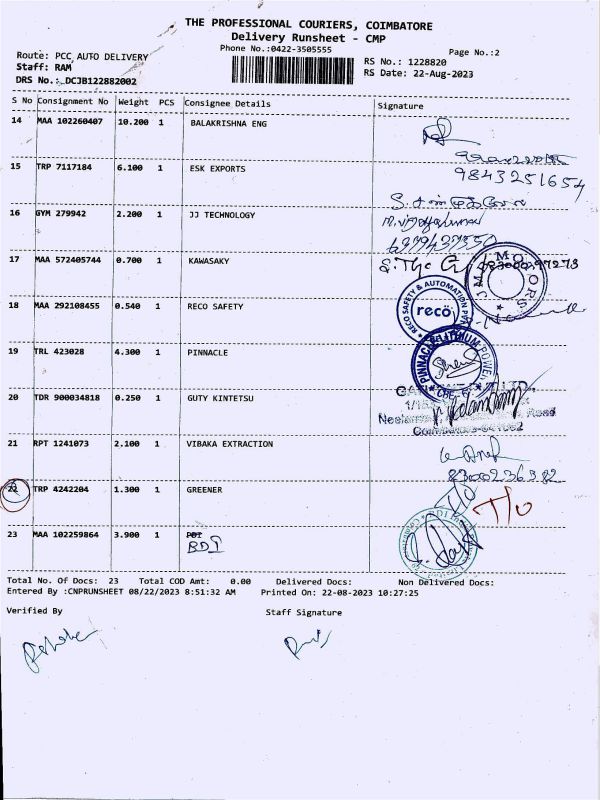 THE PROFESSIONAL COURIERS, COIMBATORE
Delivery Runsheet - CMP
Phone No.:0422-3505555
Page No.:2
Route: PCC AUTO DELIVERY
Staff: RAM
DRS No.: DCJB122882002
RS No.: 1228820
RS Date: 22-Aug-2023
S No Consignment No Weight PCS Consignee Details Signature
14 MAA 102260407 10.200 1 BALAKRISHNA ENG
15 TRP 7117184 6.100 1 ESK EXPORTS
9843251654
16 GYM 279942 2.200 1 JJ TECHNOLOGY
6379437350
17 MAA 572405744 0.700 1 KAWASAKY
MOTORS
18 MAA 292108455 0.540 1 RECO SAFETY
RECO SAFETY & AUTOMATION
reco
19 TRL 423028 4.300 1 PINNACLE
20 TDR 900034818 0.250 1 GUTY KINTETSU
Road
21 RPT 1241073 2.100 1 VIBAKA EXTRACTION
8300236382
22 TRP 4242204 1.300 1 GREENER
T/o T/o
23 MAA 102259864 3.900 1 PDI
BDI
Total No. Of Docs: 23 Total COD Amt: 0.00 Delivered Docs: Non Delivered Docs:
Entered By :CNPRUNSHEET 08/22/2023 8:51:32 AM Printed On: 22-08-2023 10:27:25
Verified By Staff Signature